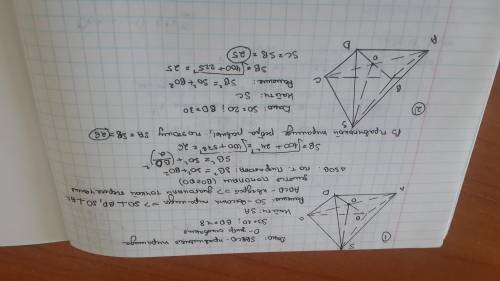 ① Дано: SABCD - правильная пирамида
O - центр основания
SO=10; BD=48
Найти SA
Решение: SO - высота пирамиды => SO⊥BD, SO⊥AC
ABCD - квадрат => диагонали точкой пересечения
делятся пополам (BO=DO)
ΔSOB: по т. Пифагора: SB²=SO²+BO²
SB²=SO²+(BD/2)²
SB=√100+24²=√100+576=26
В правильной пирамиде ребра равны, поэтому SA=SB=26
② Дано: SO=20; BD=30
Найти: SC
Решение: SB²=SO²+BO²
SB=√400+225=25
SC=SB=25